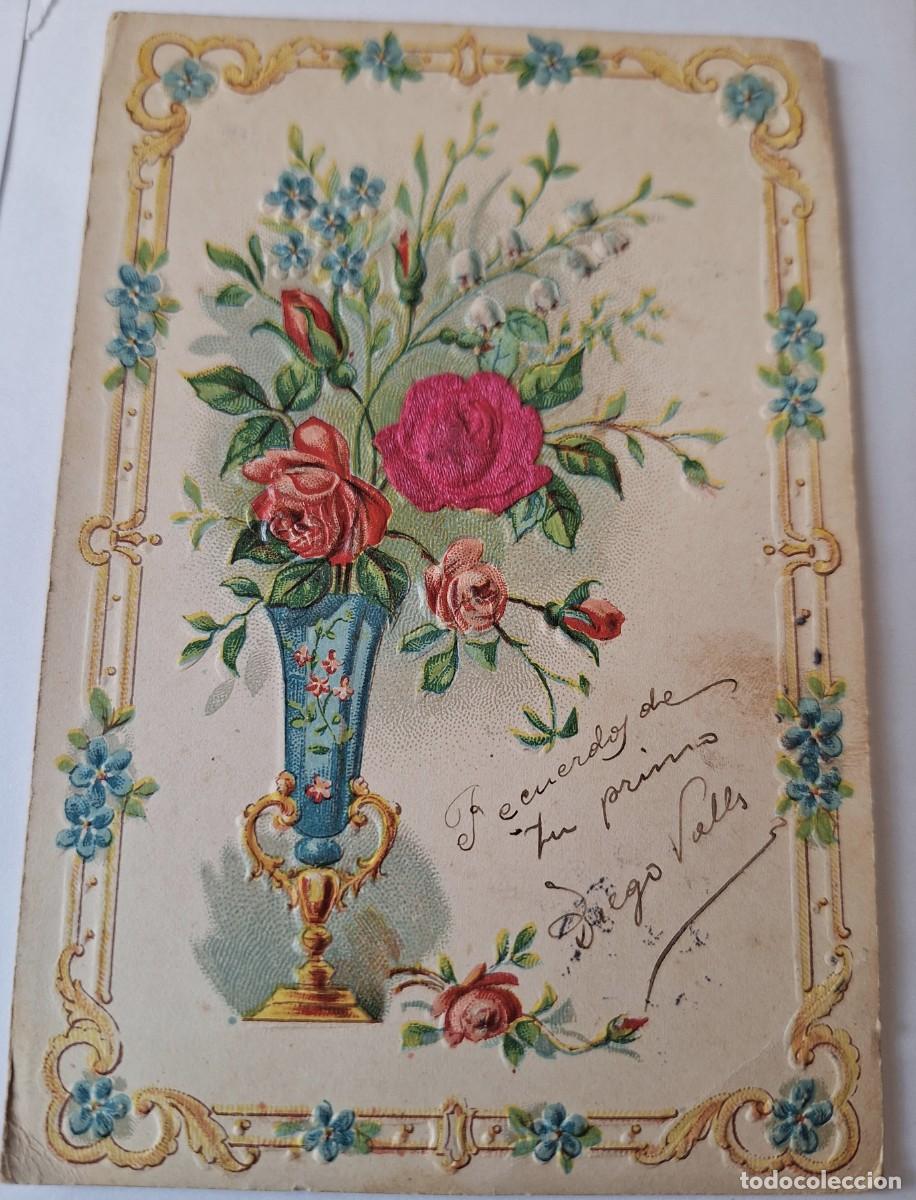 Recuerdos de
tu primo
Diego Valls
todocoleccion